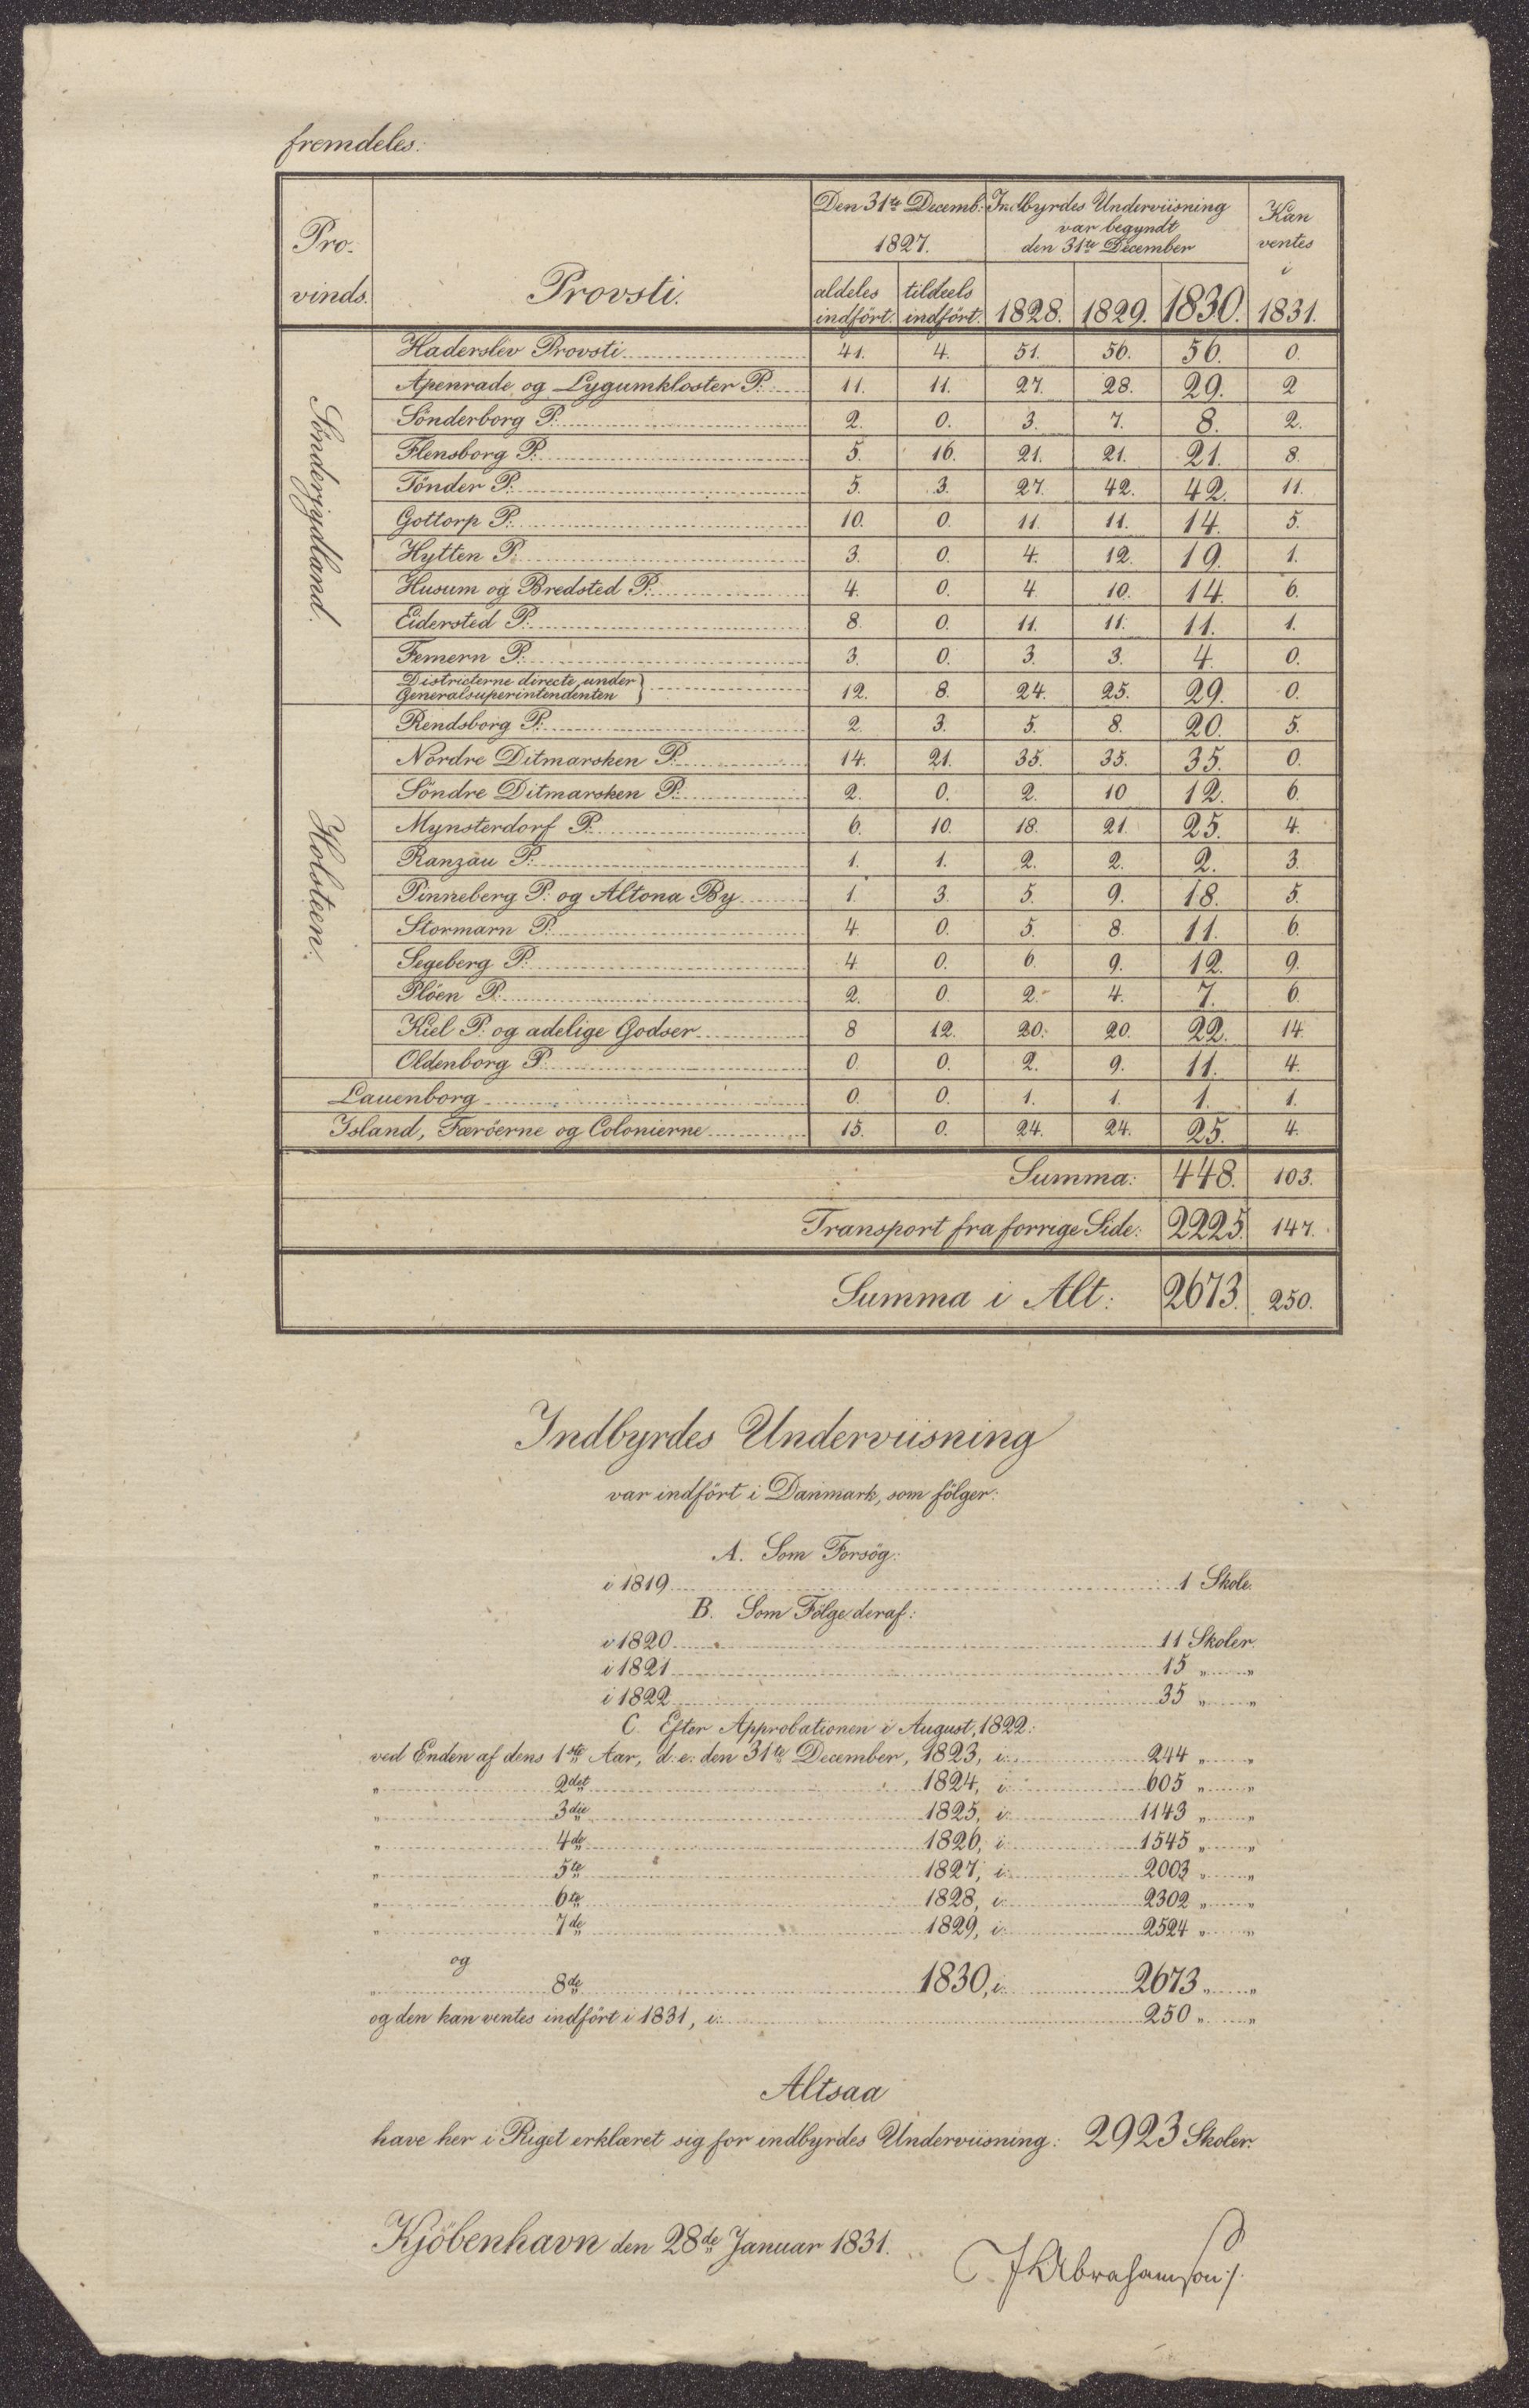 fremdeles:
Pro-
vinds.
Provsti.
Den 31te Decemb:
1827.
aldeles
indfört.
tildeels
indfört.
Indbyrdes Underviisning
var begyndt
den 31te December
1828. 1829. 1830.
Kan
ventes
i
1831.
Sönderjydland.
Haderslev Provsti 41. 4. 51. 56. 56. 0.
Apenrade og Lygumkloster P. 11. 11. 27. 28. 29. 2
Sönderborg P. 2. 0. 3. 7. 8. 2.
Flensborg P. 5. 16. 21. 21. 21. 8.
Tönder P. 5. 3. 27. 42. 42. 11.
Gottorp P. 10. 0. 11. 11. 14. 5.
Hytten P. 3. 0. 4. 12. 19. 1.
Husum og Bredsted P. 4. 0. 4. 10. 14. 6.
Eidersted P. 8. 0. 11. 11. 11. 1.
Femern P. 3. 0. 3. 3. 4. 0.
Districterne directe under
Generalsuperintendenten } 12. 8. 24. 25. 29. 0.
Holsteen.
Rendsborg P. 2. 3. 5. 8. 20. 5.
Nordre Ditmarsken P. 14. 21. 35. 35. 35. 0.
Söndre Ditmarsken P. 2. 0. 2. 10 12. 6.
Mynsterdorf P. 6. 10. 18. 21. 25. 4.
Ranzau P. 1. 1. 2. 2. 2. 3.
Pinneberg P. og Altona By 1. 3. 5. 9. 18. 5.
Stormarn P. 4. 0. 5. 8. 11. 6.
Segeberg P. 4 0. 6. 9. 12. 9.
Plöen P. 2. 0. 2. 4. 7. 6.
Kiel P. og adelige Godser 8 12. 20. 20. 22. 14.
Oldenborg P. 0. 0. 2. 9. 11. 4.
Lauenborg 0. 0. 1. 1. 1. 1.
Island, Færöerne og Colonierne 15. 0. 24. 24. 25. 4.
Summa: 448. 103.
Transport fra forrige Side: 2225. 147.
Summa i Alt: 2673. 250.
Indbyrdes Underviisning
var indfört i Danmark, som fölger:
A. Som Forsög:
i 1819 1 Skole.
B. Som Fölge deraf:
i 1820 11 Skoler.
i 1821 15 " "
i 1822 35 " "
C. Efter Approbationen i August, 1822:
ved Enden af dens 1ste Aar, d: e: den 31te December, 1823, i: 244 " "
" 2det 1824, i: 605 " "
" 3die 1825, i: 1143 " "
" 4de 1826, i: 1545 " "
" 5te 1827, i: 2003 " "
" 6te 1828, i: 2302 " "
" 7de 1829, i: 2524 " "
og
" 8de 1830, i: 2673 " "
og den kan ventes indfört i 1831, i: 250 " "
Altsaa
have her i Riget erklæret sig for indbyrdes Underviisning: 2923 Skoler.
Kjöbenhavn den 28de Januar 1831.
Abrahamson